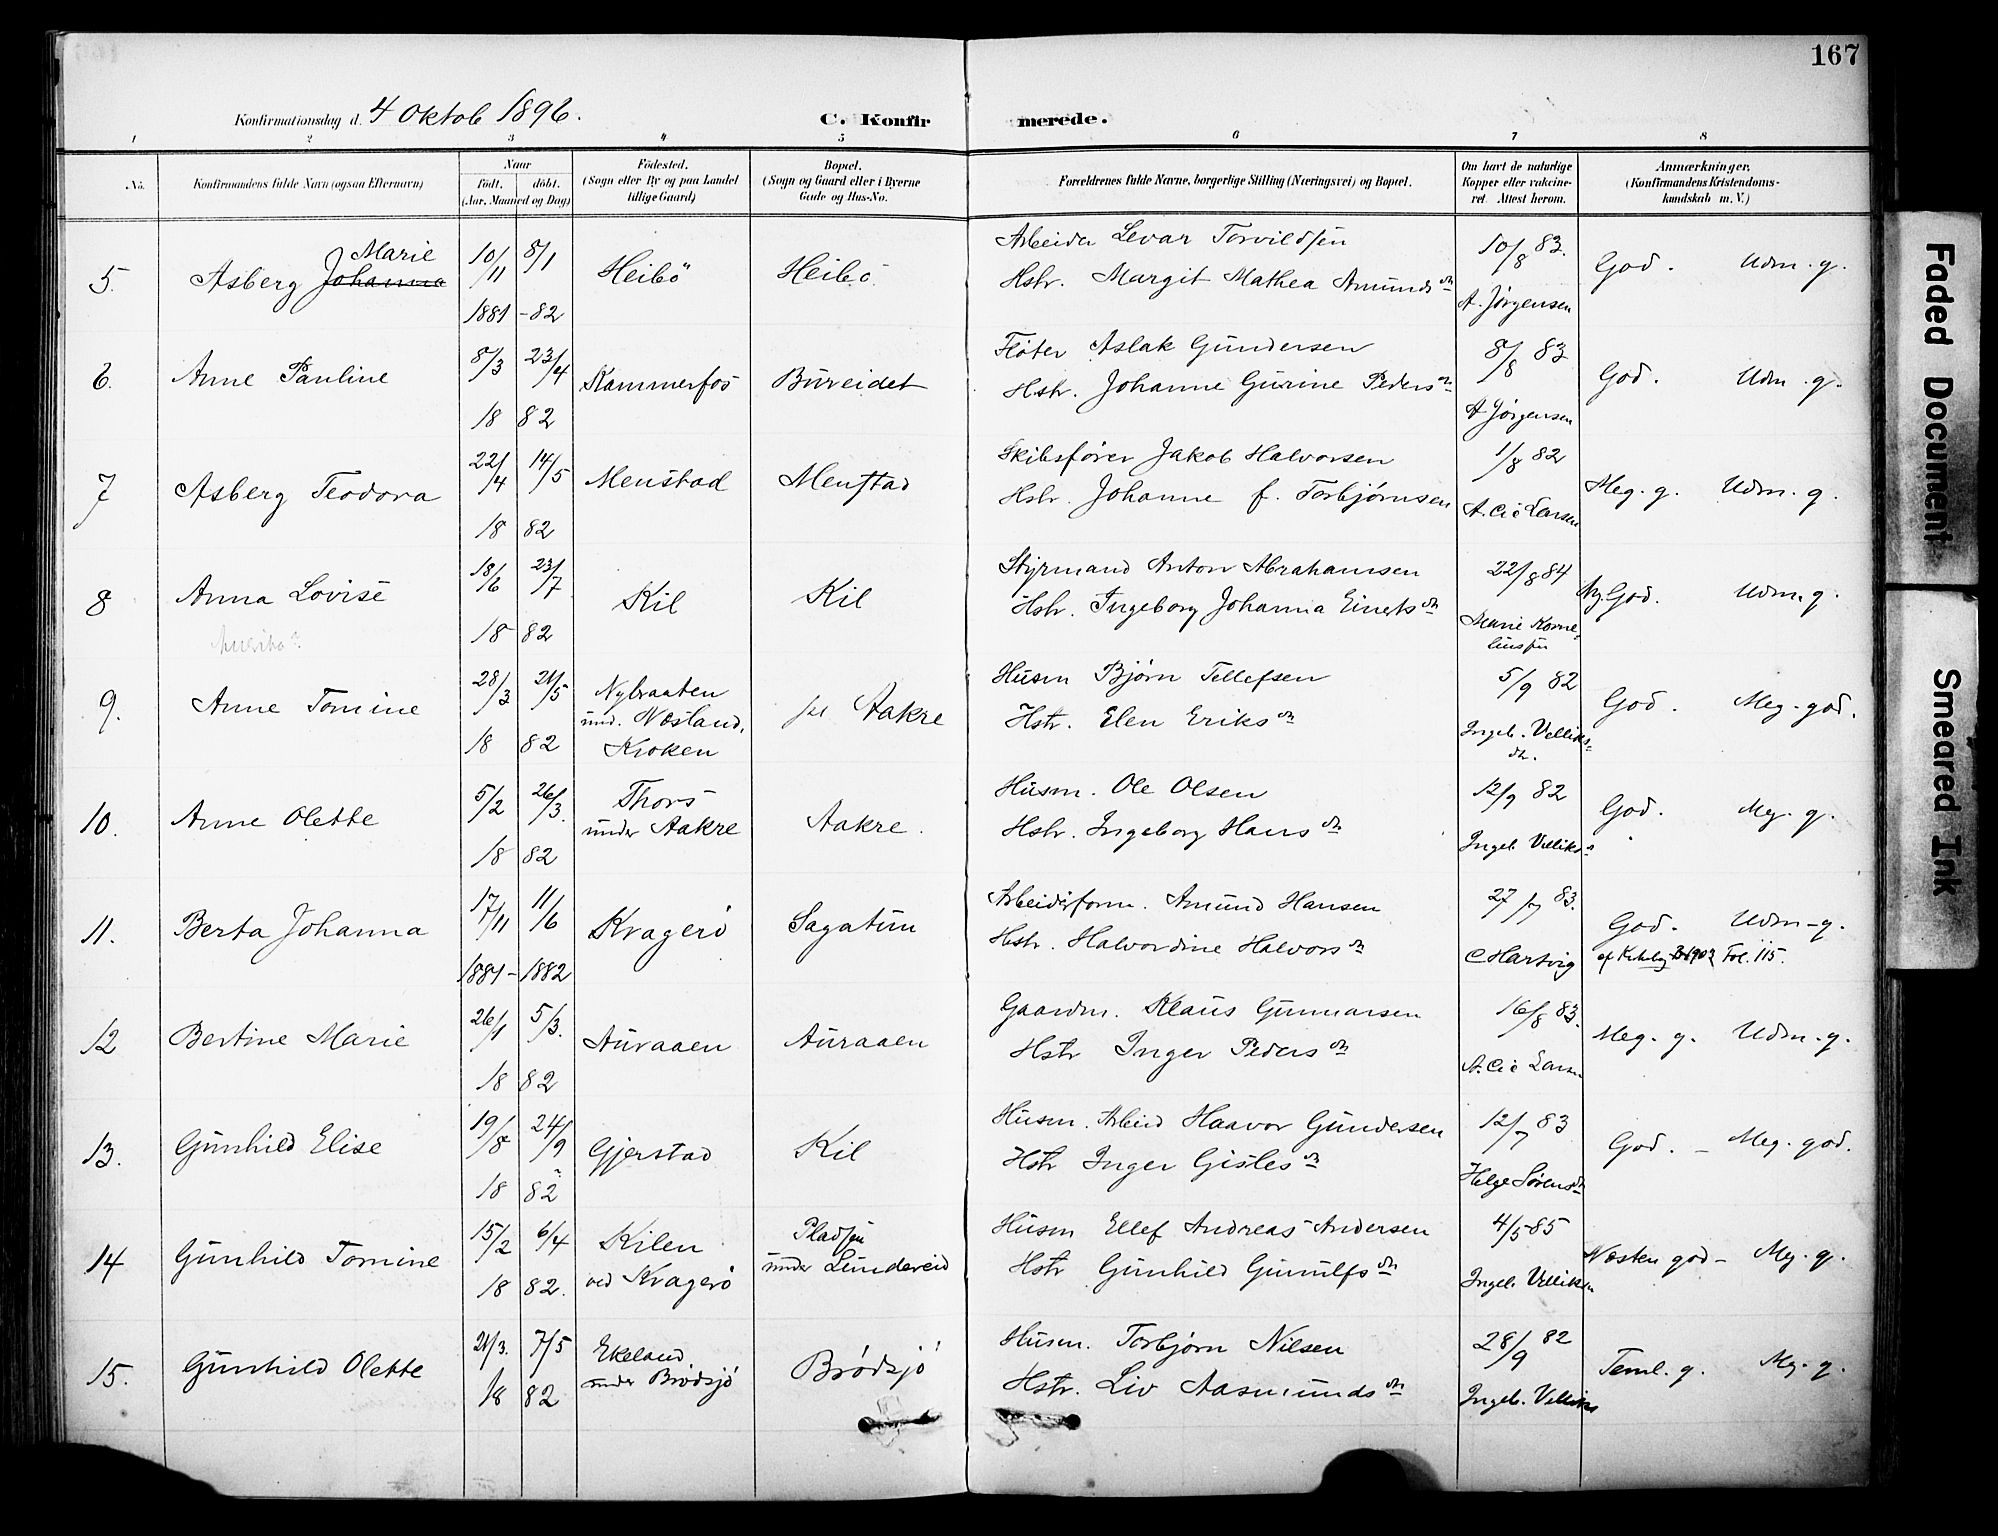 167
Konfirmationsdag d. 4 Oktob 1896.
C. Konfirmerede.
1 2 3 4 5 6 7 8
No.
Konfirmandens fulde Navn (ogsaa Efternavn)
Naar
födt. döbt.
(Aar, Maaned og Dag)
Födested.
(Sogn eller By og paa Landet
tillige Gaard)
Bopæl.
(Sogn og Gaard eller i Byerne
Gade og Hus-No.
Forældrenes fulde Navne, borgerlige Stilling (Næringsvei) og Bopæl.
Om havt de naturlige
Kopper eller vakcine-
ret. Attest herom.
Anmærkninger.
(Konfirmandens Kristendoms-
kundskab m. V.)
5. Asberg Johanna Marie 10/11 1881 8/1 -82 Heibö Heibö
Arbeider Levar Torvildsen
Hstr. Margit Mathea Amundsdtr
10/8 83. A. Jørgensen God. Udm. g.
6. Anne Pauline 8/3 23/4 18 82 Kammerfos Bureidet
Fløter Aslak Gundersen
Hstr. Johanne Gurine Pedersdtr
8/8 83 A Jörgensen God. Udm. g.
7 Asberg Teodora 22/4 14/5 18 82 Menstad Menstad
Skibsfører Jakob Halvorsen
Hstr. Johanne f. Torbjørnsen
1/8 82 A. Cic Larsen Meg. g. Udm. g.
8 Anna Lovise 18/6 23/7 18 82 Kil Kil
Styrmand Anton Abrahamsen
Hstr. Ingeborg Johanna Einertsdtr
22/8 84 Marie Kornelius Mg. God. Udm. g.
9. Anne Tomine 28/3 21/5 18 82
Nybraaten
und. Næsland,
Kroken
Aakre
Husm Bjørn Tellefsen
Hstr. Elen Eriksdtr
5/9 82 Ingeb. Velliksdtr. God. Meg. god.
10. Anne Olette 5/2 26/3. 18 82
Thors
under Aakre
Aakre.
Husm. Ole Olsen
Hstr. Ingeborg Hansdtr
12/9 82 Ingeb. Velliks God. Meg. g.
11. Berta Johanna 17/11 11/6 1881- 1882 Kragerö Sagatun
Arbeidsform. Amund Hansen
Hstr. Halvordine Halvorsdtr
27/7 83. C Hartvig God. Udm-g.
Fol. 115.
12 Bertine Marie 26/1 5/3. 18 82 Auraaen Auraaen
Gaardm. Klaus Gunnarsen
Hstr Inger Pedersdtr
16/8 83. A. Cic Larsen Meg. g. Udm. g.
13. Gunhild Elise 19/8 24/9 18 82 Gjerstad Kil
Husm. Arbeid Haavor Gundersen
Hstr Inger Gislesdtr
12/7 83 Helge Sørensdtr God. - Meg. god.
14 Gunhild Tomine 15/2 6/4 18 82.
Kilen
ved Kragerö
Pladsen
under Lundereid
Husm Ellef Andreas Andersen
Hstr Gunhild Gunulfsdtr
4/5 85 Ingeb. Velliksen Næsten god - Mg. g.
15. Gunhild Olette 21/3. 7/5 18 82
Ekeland
under Brödsjö
Brödsjö
Husm. Torbjørn Nilsen
Hstr. Liv Aasmundsdtr
28/9 82 Ingeb. Velliks Teml. g. Mg. g.
Faded Document
Smeared Ink